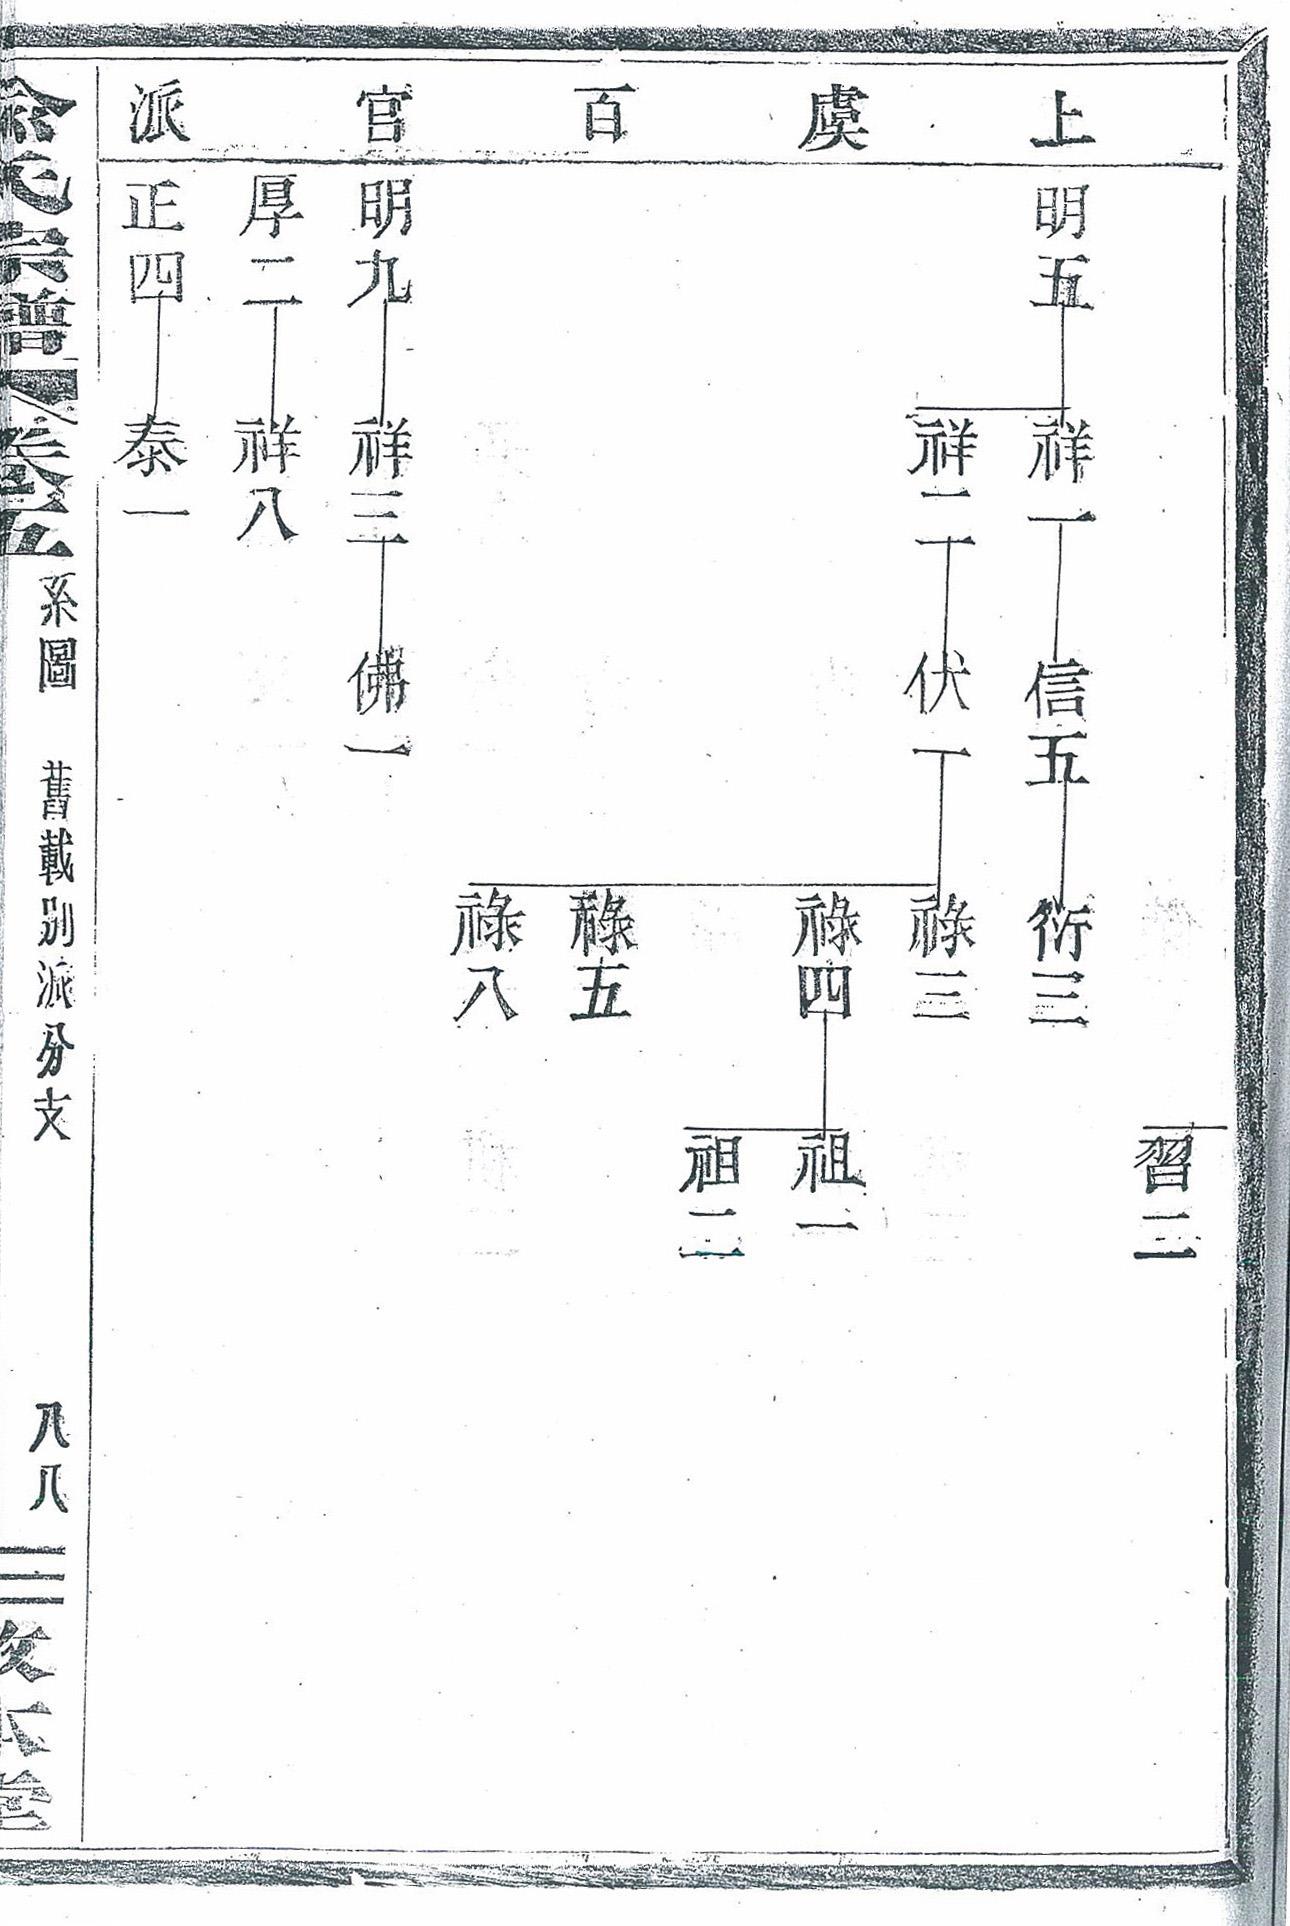 上虞百官派
習二
明五
祥一
信五
衍三
祥二
伏一
祿三
祿四
祖一
祖二
祿五
祿八
明九
祥三
佛一
厚二
祥八
正四
泰一
氏宗譜
卷五
系圖
舊載別派分支
八八
本堂